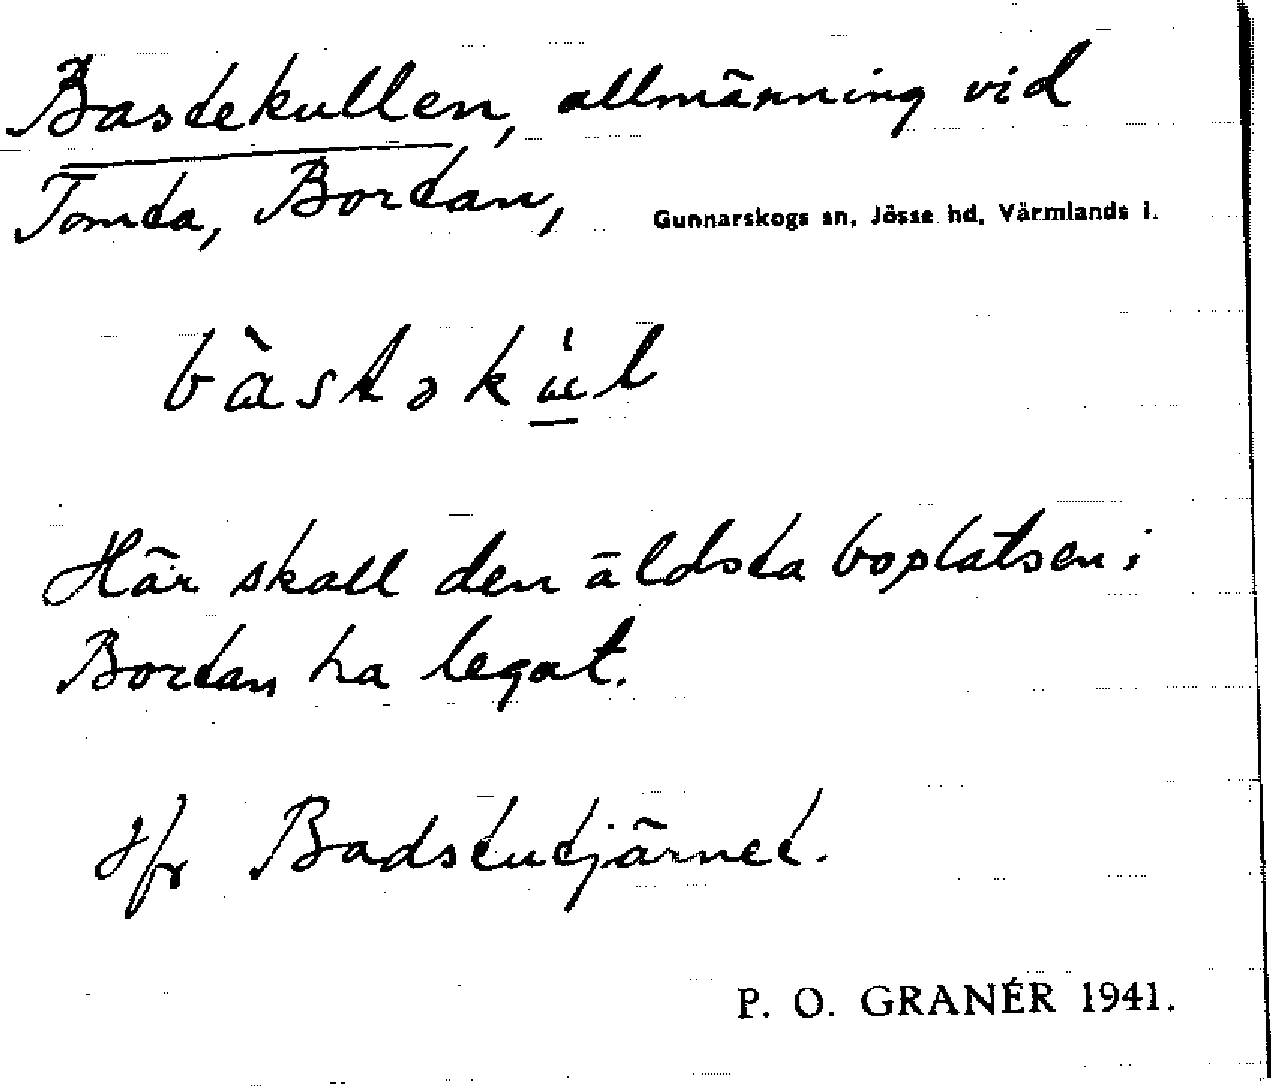 Bastekullen, allmänning vid
Tomta, Bortan, Gunnarskogs sn, Jösse hd, Värmlands l.
bàstəku̲̍l
Här skall den äldsta boplatsen i
Bortan ha legat.
Jfr Badstutjärnet.
P. O. GRANÉR 1941.